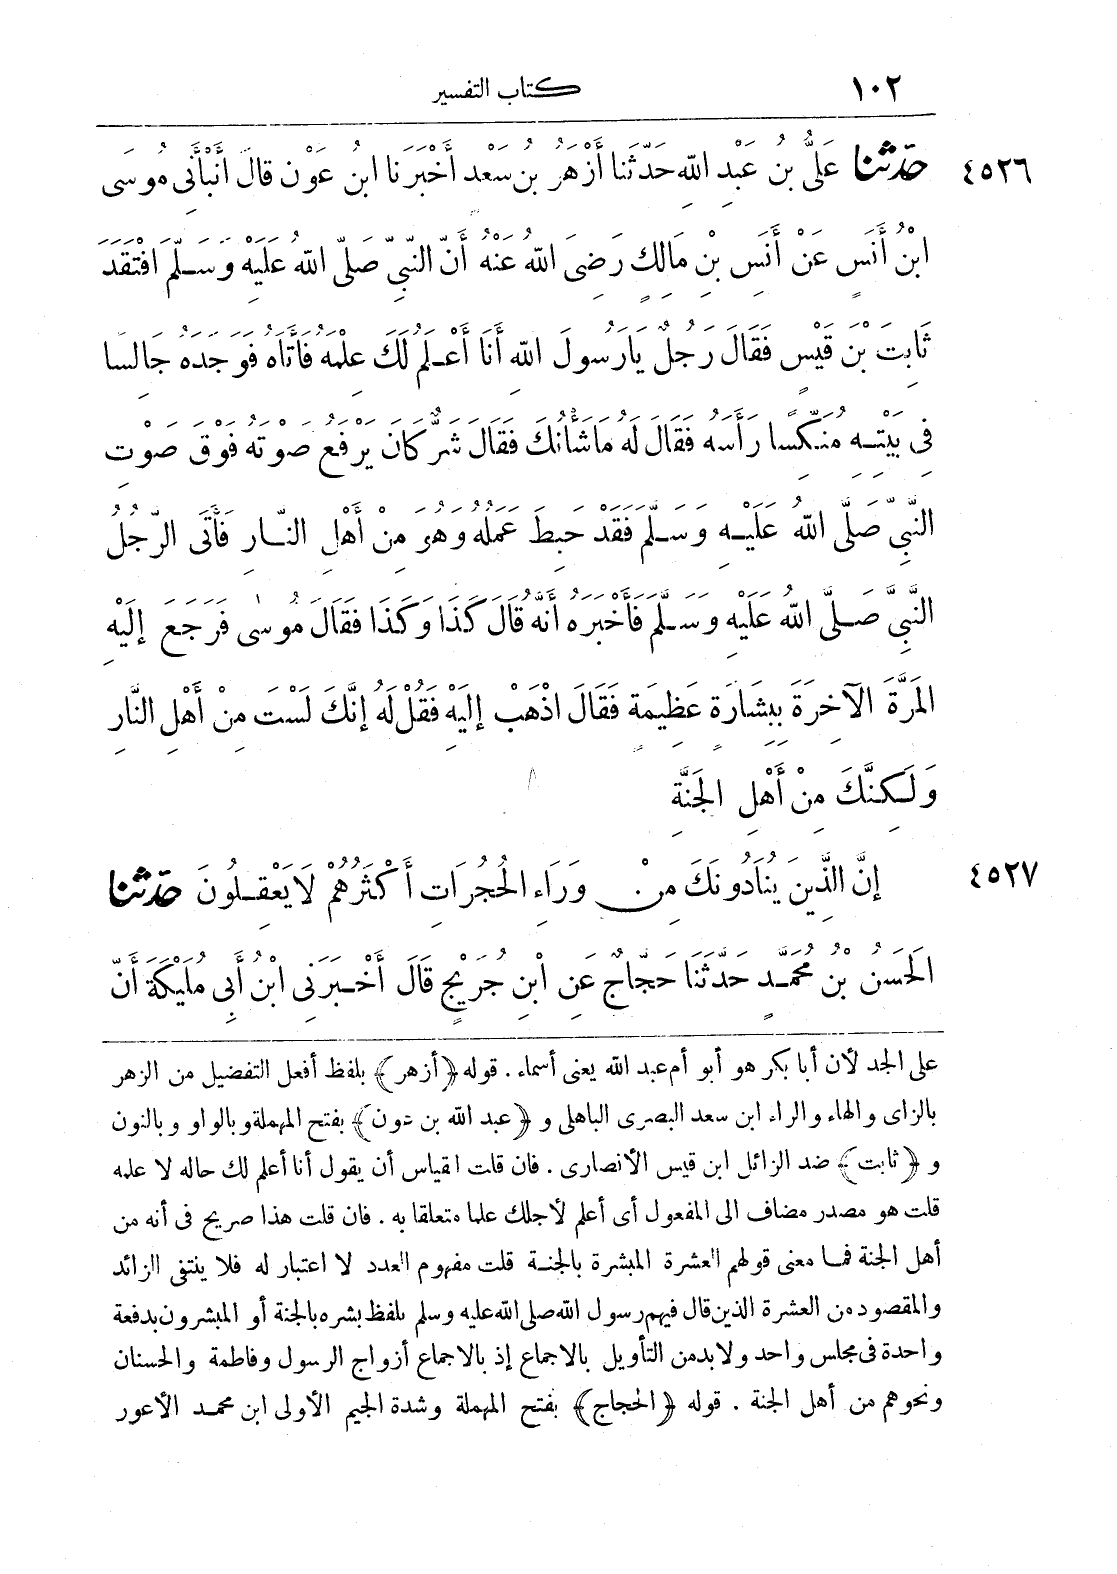 ١٠٢ كتاب التفسير
٤٥٢٦ حَدَّثَنَا عَلِىُّ بْنُ عَبْدِ اللهِ حَدَّثَنَا أَزْهَرُ بْنُ سَعْدٍ أَخْبَرَنَا ابْنُ عَوْنٍ قَالَ أَنْبَأَنِى مُوسَى
ابْنُ أَنَسٍ عَنْ أَنَسِ بْنِ مَالِكٍ رَضِىَ اللهُ عَنْهُ أَنَّ النَّبِىَّ صَلَّى اللهُ عَلَيْهِ وَسَلَّمَ افْتَقَدَ
ثَابِتَ بْنَ قَيْسٍ فَقَالَ رَجُلٌ يَا رَسُولَ اللهِ أَنَا أَعْلَمُ لَكَ عِلْمَهُ فَأَتَاهُ فَوَجَدَهُ جَالِسًا
فِى بَيْتِهِ مُنَكِّسًا رَأْسَهُ فَقَالَ لَهُ مَا شَأْنُكَ فَقَالَ شَرٌّ كَانَ يَرْفَعُ صَوْتَهُ فَوْقَ صَوْتِ
النَّبِىِّ صَلَّى اللهُ عَلَيْهِ وَسَلَّمَ فَقَدْ حَبِطَ عَمَلُهُ وَهُوَ مِنْ أَهْلِ النَّارِ فَأَتَى الرَّجُلُ
النَّبِىَّ صَلَّى اللهُ عَلَيْهِ وَسَلَّمَ فَأَخْبَرَهُ أَنَّهُ قَالَ كَذَا وَكَذَا فَقَالَ مُوسَى فَرَجَعَ إِلَيْهِ
الْمَرَّةَ الآخِرَةَ بِبِشَارَةٍ عَظِيمَةٍ فَقَالَ اذْهَبْ إِلَيْهِ فَقُلْ لَهُ إِنَّكَ لَسْتَ مِنْ أَهْلِ النَّارِ
وَلَكِنَّكَ مِنْ أَهْلِ الْجَنَّةِ
٤٥٢٧ إِنَّ الَّذِينَ يُنَادُونَكَ مِنْ وَرَاءِ الْحُجُرَاتِ أَكْثَرُهُمْ لَا يَعْقِلُونَ حَدَّثَنَا
الْحَسَنُ بْنُ مُحَمَّدٍ حَدَّثَنَا حَجَّاجٌ عَنِ ابْنِ جُرَيْجٍ قَالَ أَخْبَرَنِى ابْنُ أَبِى مُلَيْكَةَ أَنَّ
على الجد لأن أبا بكر هو أبو أم عبد الله يعنى أسماء . قوله ﴿أزهر﴾ بلفظ أفعل التفضيل من الزهر
بالزاى والهاء والراء ابن سعد البصرى الباهلى و﴿عبد الله بن عون﴾ بفتح المهملة وبالواو وبالنون
و﴿ثابت﴾ ضد الزائل ابن قيس الأنصارى . فان قلت القياس أن يقول أنا أعلم لك حاله لا علمه
قلت هو مصدر مضاف الى المفعول أى أعلم لأجلك علما متعلقا به . فان قلت هذا صريح فى أنه من
أهل الجنة فما معنى قولهم العشرة المبشرة بالجنة قلت مفهوم العدد لا اعتبار له فلا ينتفى الزائد
والمقصود من العشرة الذين قال فيهم رسول الله صلى الله عليه وسلم بلفظ بشره بالجنة أو المبشرون بدفعة
واحدة فى مجلس واحد ولا بد من التأويل بالاجماع إذ بالاجماع أزواج الرسول وفاطمة والحسنان
ونحوهم من أهل الجنة . قوله ﴿الحجاج﴾ بفتح المهملة وشدة الجيم الأولى ابن محمد الأعور